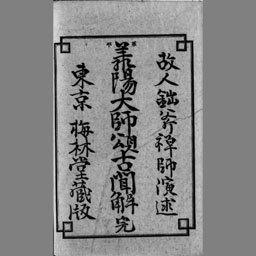 故人鈯斧禪師演述
義陽大師頌古聞解 完
東京 梅林堂藏版